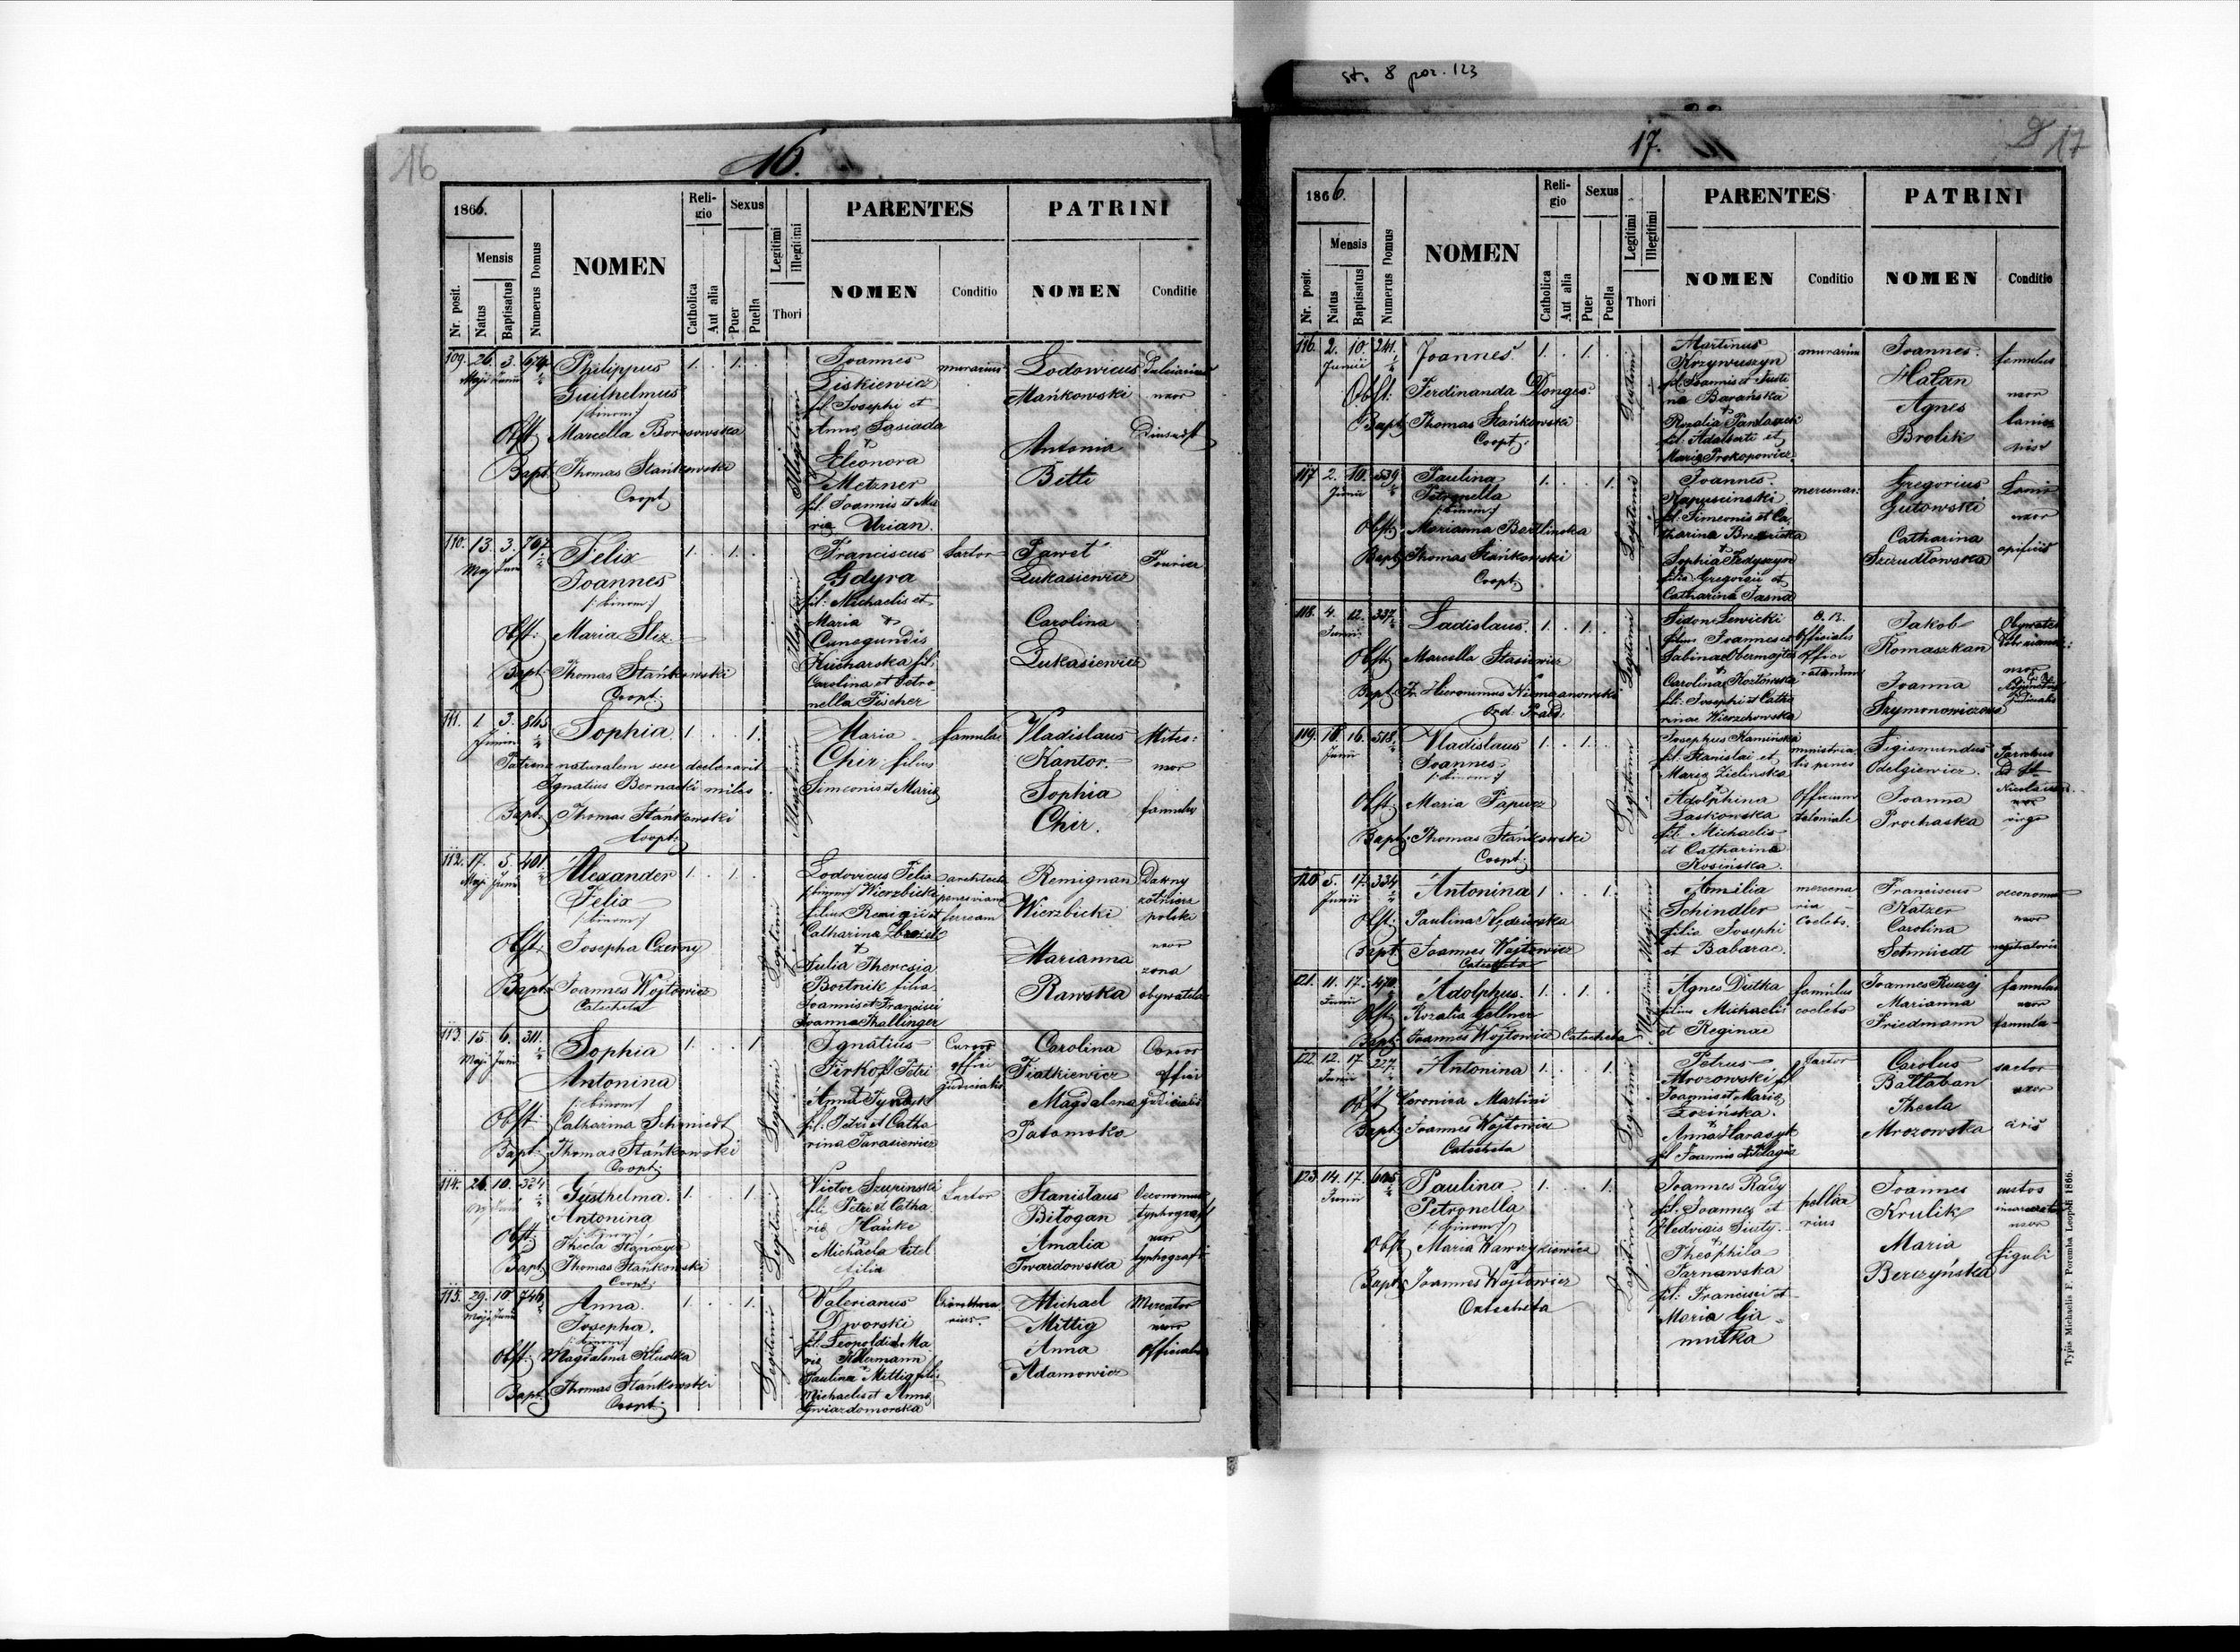 str. 8 poz. 123
16
16.
1866.
Mensis
Nr. posit.
Natus
Baptisatus
Numerus Domus
NOMEN
Reli-
gio
Catholica
Aut alia
Sexus
Puer
Puella
Legitimi
Illegitimi
Thori
PARENTES
NOMEN
Conditio
PATRINI
NOMEN
Conditio
109. 26. 3. 674
Philippus
Guilhelmus
/:binom:/
Obst: Marcella Borosowska
Bapt: Thomas Stańkowski
Coopt:
1. 1.
Illegitimi
Joannes
Liskiewicz
fil: Josephi et
Anna Sasiada
+
Eleonora
Metzner
fil: Joannis et Ma
ria Urian.
murarius
Lodowicus
Mańkowski
Antonia
Bitti
uxor
110. 13. 3. 767
Felix
Joannes
/:binom:/
Obst: Maria Sliz
Bapt: Thomas Stańkowski
Coopt:
1. 1.
Illegitimi
Franciscus
Gdyra
fil: Michaelis et
Maria +
Cunegundis
Kucharska fil:
Carolina et Petro
nella Fischer
Sartor
Paweł
Łukasiewicz
Carolina
Łukasiewicz
Fourier
111. 1. 3. 845
Junii
Sophia
Patrem naturalem sese declaravit
Ignatius Bernacki miles
Bapt: Thomas Stańkowski
Coopt:
1. 1.
Illegitimi
Maria
Chir filius
Simeonis et Maria
famula
Vladislaus
Kantor.
Sophia
Chir.
Miles
uxor
famula
112. 17. 5. 401
Maji Junii
Alexander
Felix
/:binom:/
Obst: Josepha Czerny
Bapt: Joannes Wojtowicz
Catecheta
1. 1.
Legitimi
Lodovicus Felix
/:binom:/ Wierzbicki
filius Remigii et
Catharina
+
Julia Theresia
Bortnik filia
Joannis et Francisci
Joanna Thallinger
architecta
penes viam
ferream
Remignan
Wierzbicki
Marianna
Rawska
Dawny
żołnierz
polski
uxor
żona
obywatela
113. 15. 6. 311.
Maji Junii
Sophia
Antonina
/:binom:/
Obst: Catharina Schmiedt
Bapt: Thomas Stańkowski
Coopt:
1. 1.
Legitimi
Ignatius
Firko fil Petri
Anna
fil: Petri et Catha
rina Tarasiewicz
Cursor
offici
judicialis
Carolina
Fiatkiewicz
Magdalena
Patomska
Cursor
offici
judicialis
114. 26. 10. 324
Gusthelma.
Antonina
/:binom:/
Obst: Thecla Stanczyei
Bapt: Thomas Stańkowski
Coopt:
1. 1.
Legitimi
Victor Szupinski
fil: Petri et Catha
ria Hauke
+
Michaela Eitel
filia
Sartor
Stanislaus
Biłogan
Amalia
Twardowska
Oeconomus
typhograf
uxor
typhografi
115. 29. 10. 746
Maji Junii
Anna.
Josepha.
/:binom:/
Obst: Magdalena Kluska
Bapt: Thomas Stańkowski
Coopt:
1. 1.
Legitimi
Valerianus
Dworski
fil: Leopoldi et Ma
ria Kellermann
Paulina Mittig fil:
Michaelis et Anna
Gwiazdomorska
Michael
Mittig
Anna
Adamowicz
Mercator
uxor
Officialis
17.
8 17
1866.
Mensis
Nr. posit.
Natus
Baptisatus
Numerus Domus
NOMEN
Reli-
gio
Catholica
Aut alia
Sexus
Puer
Puella
Legitimi
Illegitimi
Thori
PARENTES
NOMEN
Conditio
PATRINI
NOMEN
Conditio
116. 2. 10. 241.
Junii
Joannes.
Obst: Ferdinanda Donges.
Bapt: Thomas Stańkowski
Coopt:
1. 1.
Legitimi
Martinus
Krzywuszyn
fil: Joannis et Justi
na Barańska
+
Rozalia
fil: Adalberti et
Maria Prokopowicz.
murarius
Joannes.
Hałan
Agnes
Brolik
famulus
uxor
117. 2. 10. 539
Junii
Paulina
Petronella
/:binom:/
Obst: Marianna Bertlinska
Bapt: Thomas Stańkowski
Coopt:
1. 1.
Legitimi
Joannes.
Kapuscinski
fil: Simeonis et Ca
tharina
+
Sophia Fedyszyn
filia Gregorii et
Catharina Jasna
mercenar:
Gregorius
Gutowski
Catharina
Szczudłowska
uxor
opificis
118. 4. 12. 337
Junii
Ladislaus.
Obst: Marcella Stasiewicz
Bapt: Fr. Hieronimus Niemczanowski
Ord: Praed:
1. 1.
Legitimi
Sidon Lewicki
filius Joannes et
Sabina Obermajtes
+
Carolina Kozłowska
fil: Josephi et Catha
rinae Wierzchowska
Officialis
Jakob
Romaszkan
Joanna
Szymonowiczowa
Obywatel
uxor
Judicialis
119. 16. 16. 518
Junii
Vladislaus
Joannes
/:binom:/
Obst: Maria Papucz
Bapt: Thomas Stańkowski
Coopt:
1. 1.
Legitimi
Josephus Kaminska
fil: Stanislai et
Maria Zielinska
+
Adolphina
Laskowska
fil Michaelis
et Catharina
Kosińska.
ministeria
lis penes
Officium
teloniale
Sigismundus
Odelgiewicz.
Joanna
Prochaska
Parochus
ad St
Nicolaum
virgo
120. 5. 17. 334
Junii
Antonina
Obst: Paulina Kędzierska
Bapt: Joannes Wojtowicz
Catecheta
1. 1.
Illegitimi
Amilia
Schindler
filia Josephi
et Babarae.
mercena
ria
Coelebs.
Franciscus
Katzer
Carolina
Schmiedt
oeconomus
uxor
121. 11. 17. 470
Junii
Adolphus.
Obst: Rozalia Gellner
Bapt: Joannes Wojtowicz Catecheta
1. 1.
Illegitimi
Agnes Dutka
filius Michaelis
et Reginae
famulus
coelebs
Joannes Ruczaj
Marianna
Friedmann
famulus
uxor
famula
122. 12. 17. 227.
Junii
Antonina
Obst: Veronica Martini
Bapt: Joannes Wojtowicz
Catecheta
1. 1.
Legitimi
Petrus
Mrozowski fil
Joannis et Maria
Łozińska.
+
Anna Harasyk
fil Joannis et Pelagis
Sartor
Carolus
Battaban
Thecla
Mrozowska
sartor
uxor
civis
123. 14. 17. 605
Junii
Paulina
Petronella
/:binom:/
Obst: Maria Wawrzykiewicz
Bapt: Joannes Wojtowicz
Catecheta
1. 1.
Legitimi
Joannes Rady
fil: Joannes et
Hedvigis
+
Theophila
Tarnawska
fil: Francisci et
Maria Gja
mutka
pellia
rius
Joannes
Krulik
Maria
Berczyńska
custos
uxor
figuli
Typis Michaelis F. Poremba Leopoli 1866.